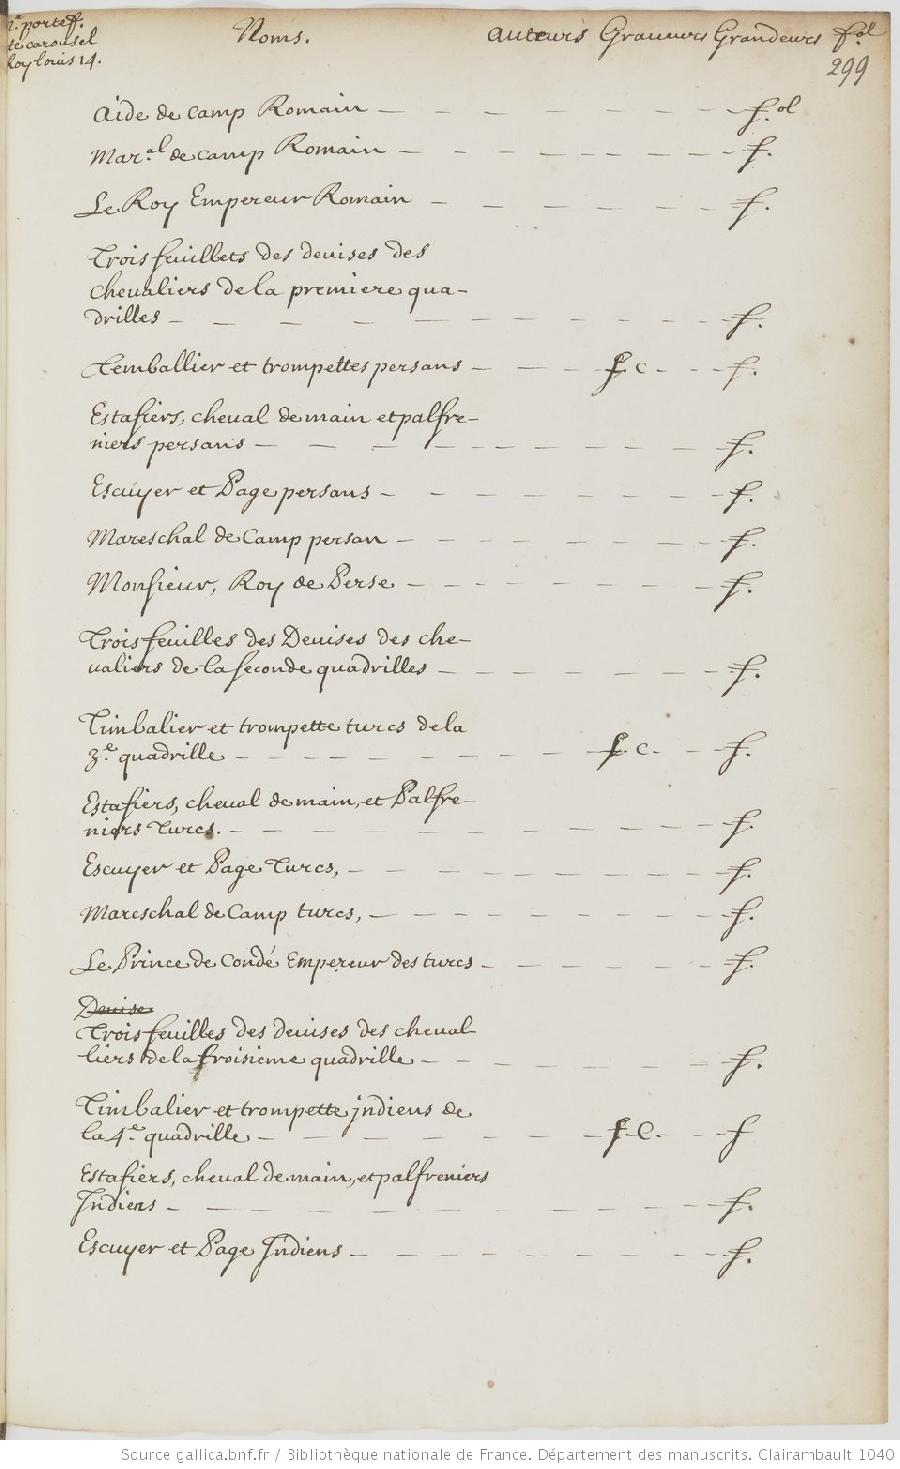 2.e portef.
de carousel
Roy louis 14.
Noms.
auteurs Graueurs Grandeurs f.ol
299
aide de camp Romain — — — — — — — f.ol
Mar.al de camp Romain — — — — — — — f.
Le Roy Empereur Romain — — — — — — f.
Trois feuillets des deuises des
cheualiers de la premiere qua-
drilles — — — — — — — — — f.
Temballier et trompettes persans — — — f c. — — f.
Estafiers, cheual de main et palfre-
niers persans — — — — — — — — — f.
Escuyer et Page persans — — — — — — — f.
Mareschal de Camp persan — — — — — — f.
Monsieur, Roy de Perse — — — — — — — f.
Trois feuilles des Deuises des che-
ualiers de la seconde quadrilles — — — — — — f.
Timbalier et trompette turcs de la
3.e quadrille — — — — — — — f c. — — f.
Estafiers, cheual de main, et Palfre-
niers Turcs. — — — — — — — — f.
Escuyer et Page Turcs, — — — — — — — f.
Mareschal de Camp turcs, — — — — — — — f.
Le Prince de Condé Empereur des turcs — — — — — f.
Deuise
Trois feuilles des deuises des cheual
liers de la troisieme quadrille — — — — — — f.
Timbalier et trompette jndiens de
la 4.e quadrille — — — — — — — f C. — — f
Estafiers, cheual de main, et palfreniers
Jndiens — — — — — — — — — f.
Escuyer et Page Jndiens — — — — — — — f.
Source gallica.bnf.fr / Bibliothèque nationale de France. Département des manuscrits. Clairambault 1040